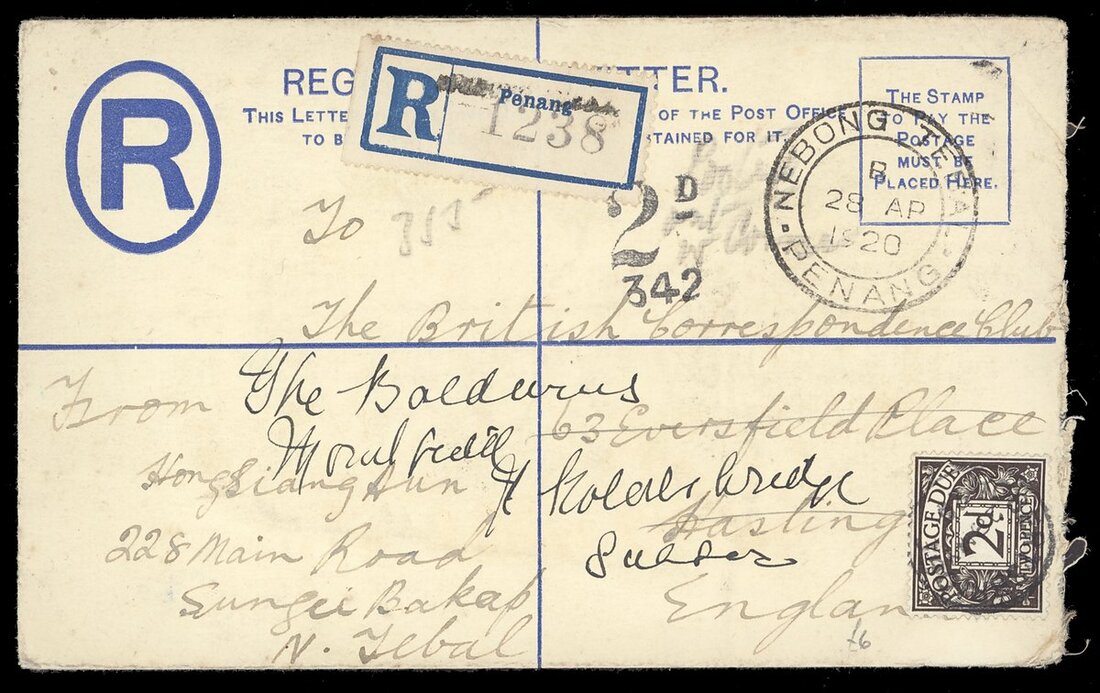 R
REG TTER.
THIS LETTE OF THE POST OFFICE
TO B TAINED FOR IT
R Penang
1238
THE STAMP
TO PAY THE
POSTAGE
MUST BE
PLACED HERE.
NEBONG TEBAL
B
28 AP
1920
PENANG
2D
342
To
The British Correspondence Club
63 Eversfield Place
Hasting
England
From
Hong Siang Hun
228 Main Road
Sungei Bakap
N. Tebal
The
POSTAGE DUE
2d
TWO PENCE